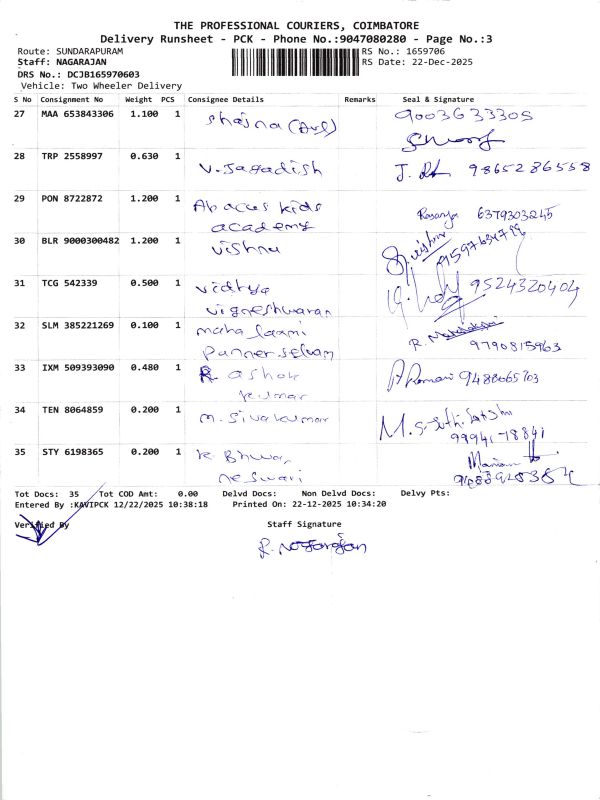 THE PROFESSIONAL COURIERS, COIMBATORE
Delivery Runsheet - PCK - Phone No.:9047080280 - Page No.:3
Route: SUNDARAPURAM RS No.: 1659706
Staff: NAGARAJAN RS Date: 22-Dec-2025
DRS No.: DCJB165970603
Vehicle: Two Wheeler Delivery
S No Consignment No Weight PCS Consignee Details Remarks Seal & Signature
27 MAA 653843306 1.100 1 Shajna 9003633305
28 TRP 2558997 0.630 1 V. Jagadish J. 9865286558
29 PON 8722872 1.200 1 Abacus kids 6379303245
academy
30 BLR 9000300482 1.200 1 Vishnu
31 TCG 542339 0.500 1 Vidhya 9524320404
Vigneshwaran
32 SLM 385221269 0.100 1 maha laxmi R.
Panner selvam 9790815963
33 IXM 509393090 0.480 1 R ashok
kumar
34 TEN 8064859 0.200 1 M. Sivakumar M.
9994178841
35 STY 6198365 0.200 1 K Bhuvan
neswari
Tot Docs: 35 Tot COD Amt: 0.00 Delvd Docs: Non Delvd Docs: Delvy Pts:
Entered By :KAVIPCK 12/22/2025 10:38:18 Printed On: 22-12-2025 10:34:20
Verified By Staff Signature
R. Nagarajan